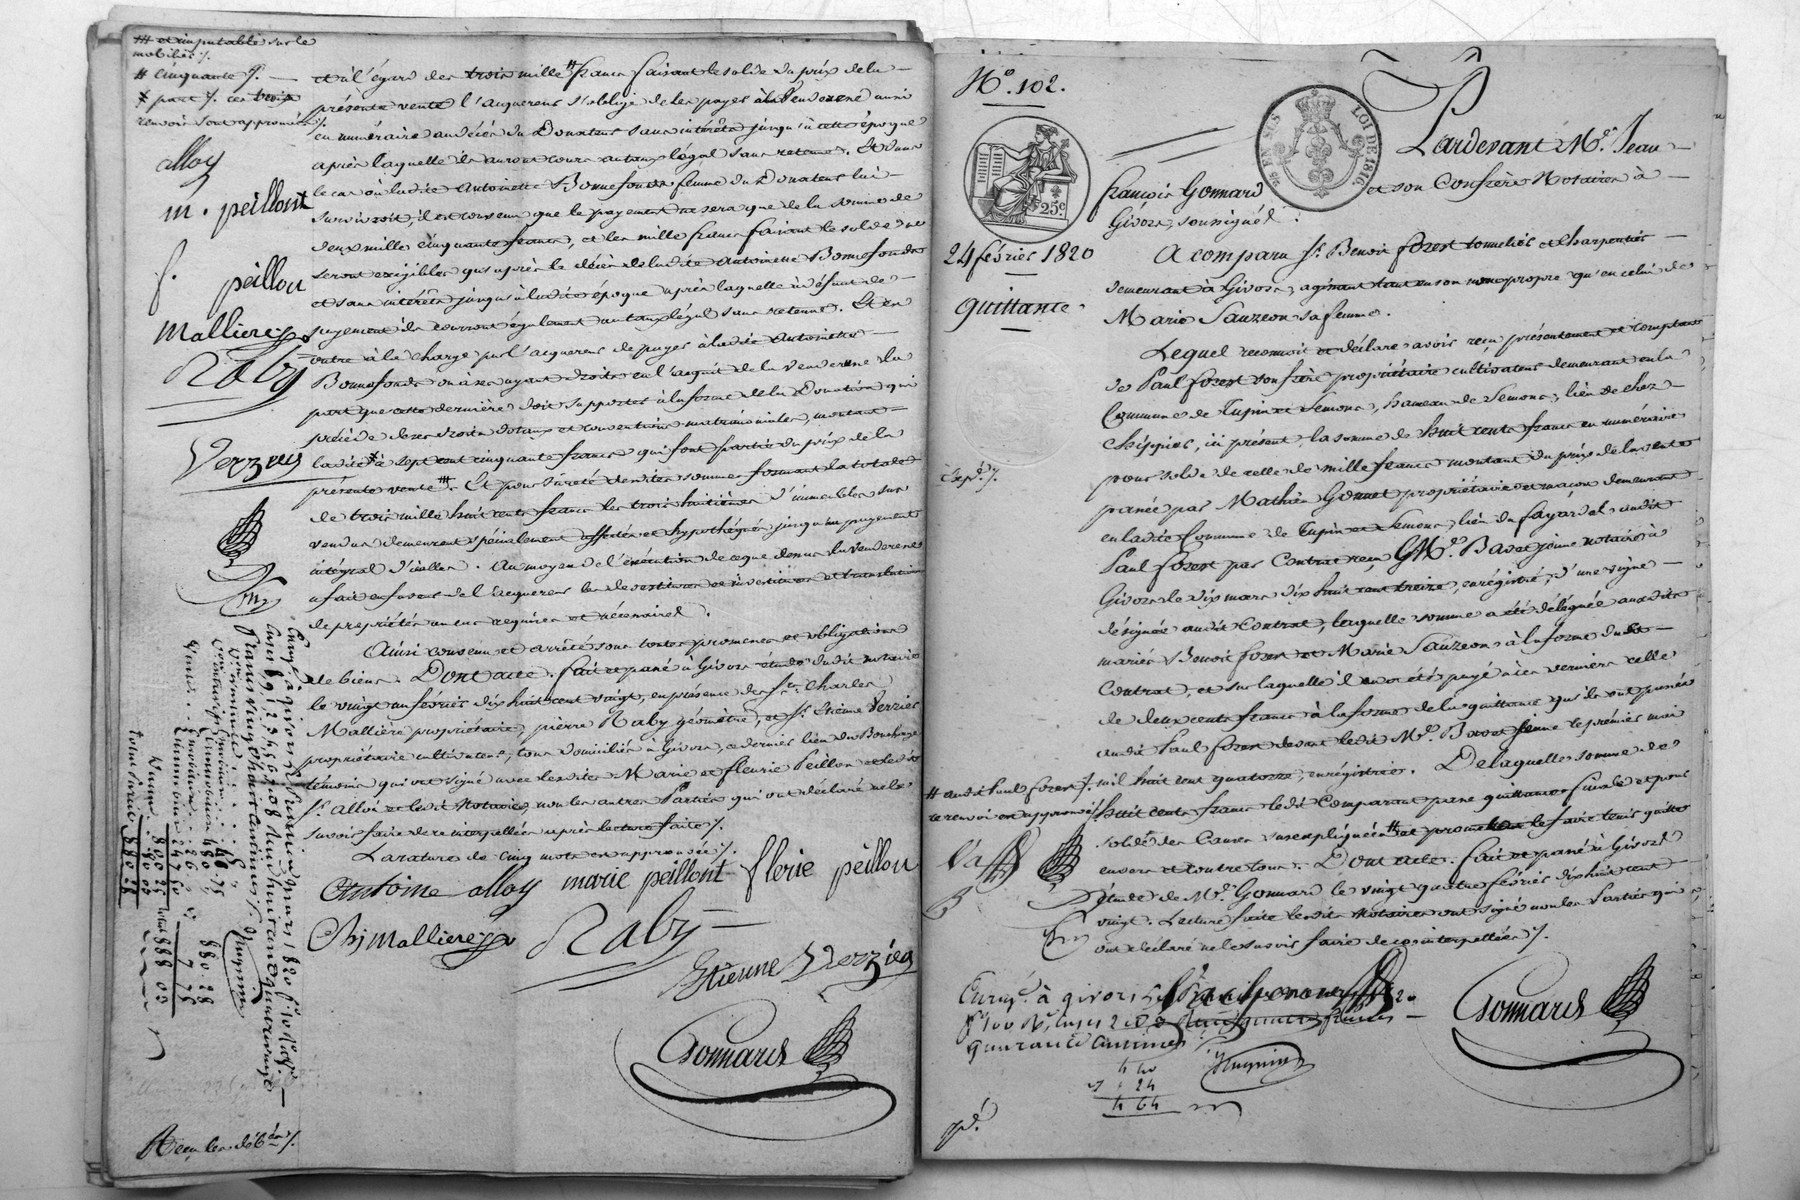 ## et imputable sur le
mobilier ./.
# cinquante ./. —
+ part ./. ces trois
renvois sont approuvés ./.
alloy
m. peillont
f. peillon
Mallierexx
Raby
Verzieu
et à l'égard des trois mille # francs faisant le solde du prix de la —
présente vente l'acquereur s'oblige de les payer à la Venderesse aussi
en numéraire au décès du Donateur sans intérêts jusqu'à cette époque
après laquelle ils auront cours au taux légal sans retenue. Et dans
le cas où ladite Antoinette Bonnefonds femme du Donateur lui —
survivroit, il est convenu que le payement ne sera que de la somme de
deux mille cinquante francs, et les mille francs faisant le solde ne
seront exigibles qu'après le décès de ladite Antoinette Bonnefonds
et sans intérêts jusqu'à ladite époque après laquelle à défaut de —
payement ils courront également au taux légal sans retenue. Et en
outre à la charge par l'acquereur de payer à ladite Antoinette —
Bonnefonds ou à ses ayant droits en l'acquit de la Venderesse la
part que cette dernière doit supporter à la forme de la Donation qui
précède de ses droits dotaux et conventions matrimoniales, montant —
ladite + à sept cent cinquante francs qui font partie du prix de la
présente vente ##. Et pour sûreté desdites sommes formant la totale
de trois mille huit cents francs les trois huitièmes d'immeubles sus
vendus demeurent spécialement affectés et hypothéqués jusqu'au payement
intégral d'icelles. Au moyen de l'exécution de ce que dessus la Venderesse
a fait en faveur de l'acquereur les devestitures et investitures et translations
de propriétés en cas requises et nécessaires.
Ainsi convenu et arrêté sous toutes promesses et obligations
de biens. Dont acte. fait et passé à Givors étude dudit notaire
le vingt un février dix huit cent vingt, en présence des Srs Charles
Mallière propriétaire, pierre Raby géomètre, et Sr Etienne Verzier
propriétaire cultivateur, tous domiciliés à Givors, ce dernier lieu du
témoins qui ont signé avec lesdites Marie et fleurie Peillon et ledit
Sr alloi et ledit Notaire, non les autres Parties qui ont déclaré ne le
savoir faire de ce interpellées après lecture faite ./.
La rature de cinq mots est approuvée ./.
Antoine alloy marie peillont florie peillon
Chj Mallierexx Raby
Etienne Verzieu
Gonnard
total 888 03
No. 102.
25 c
25 EN SUS LOI DE 1816.
24 février 1820
quittance.
Expé ./.
Pardevant Me. Jean —
françois Gonnard et son Confrère Notaires à —
Givors, soussignés.
A comparu Sr. Benoit forest tonnelier et charpentier —
demeurant à Givors, agissant tant en son nom propre qu'en celui de
Marie Sauzeon sa femme.
Lequel reconnoit et déclare avoir reçu présentement et comptant
de Paul forest son frère propriétaire cultivateur demeurant en la
Commune de Tupin et Semons, hameau de Semons, lieu de chez —
, ici présent la somme de huit cents francs en numéraire
pour solde de celle de mille francs montant du prix de la vente
passée par Mathieu Gonnet propriétaire et maçon demeurant
en ladite Commune de Tupin et Semons, lieu du fayard et audit
Paul forest par Contrat reçu Me. Badet jeune notaire à
Givors le dix mars dix huit cent treize, enregistré, d'une vigne —
désignée audit Contrat, laquelle somme a été déléguée auxdits
mariés Benoit forest et Marie Sauzeon à la forme dudit —
Contrat, et sur laquelle il avoit été payé à ces derniers celle
de deux cents francs à la forme de la quittance qu'ils ont passée
audit Paul forest devant ledit Me. Badet jeune le premier mai
mil huit cent quatorze, enregistrée. De laquelle somme de
# audit Paul forest ./.
ce renvoi est approuvé ./.
huit cents francs ledit Comparant passe quittance finale et pour
solde des Causes susexpliquées # et promet le faire tenir quitte
envers et contre tous. Dont acte. fait et passé à Givors
étude de Me. Gonnard le vingt quatre février dix huit cent
vingt. Lecture faite lesdits Notaires ont signé non les Parties qui
ont déclaré ne le savoir faire de ce interpellées ./.
Gonnard
quarante Centimes
4 40
44
4 64